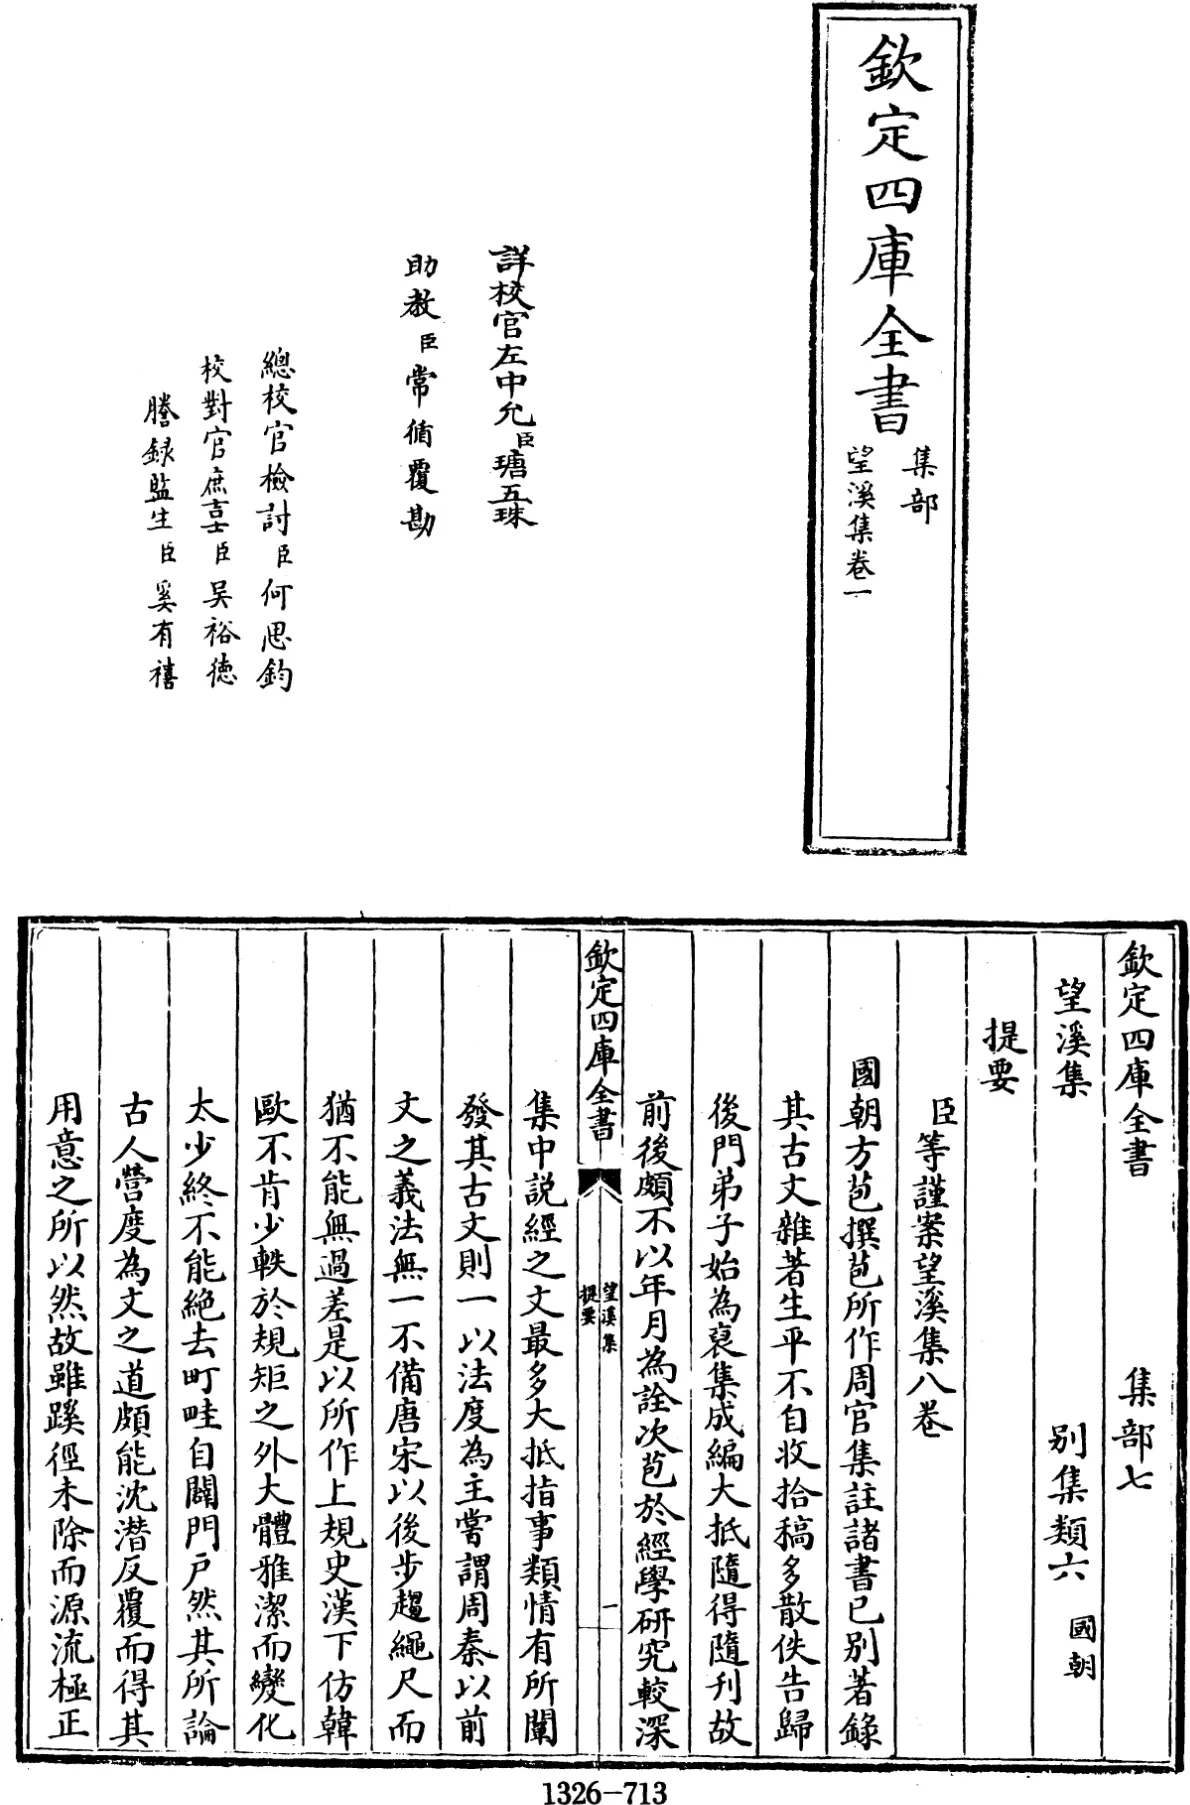 欽定四庫全書
集部
望溪集卷一
詳校官左中允臣瑭五珠
助教臣常循覆勘
總校官檢討臣何思鈞
校對官庶吉士臣吴裕德
謄録監生臣奚有禧
欽定四庫全書 集部七
望溪集 别集類六 國朝
提要
臣等謹案望溪集八卷
國朝方苞撰苞所作周官集註諸書已别著錄
其古文雜著生平不自收拾稿多散佚告歸
後門弟子始為裒集成編大抵隨得隨刋故
前後頗不以年月為詮次苞於經學研究較深
欽定四庫全書 望溪集 提要 一
集中説經之文最多大抵指事類情有所闡
發其古文則一以法度為主嘗謂周秦以前
文之義法無一不備唐宋以後步趨繩尺而
猶不能無過差是以所作上規史漢下仿韓
歐不肯少軼於規矩之外大體雅潔而變化
太少終不能絶去町畦自闢門戸然其所論
古人營度為文之道頗能沈潛反覆而得其
用意之所以然故雖蹊徑未除而源流極正
1326-713